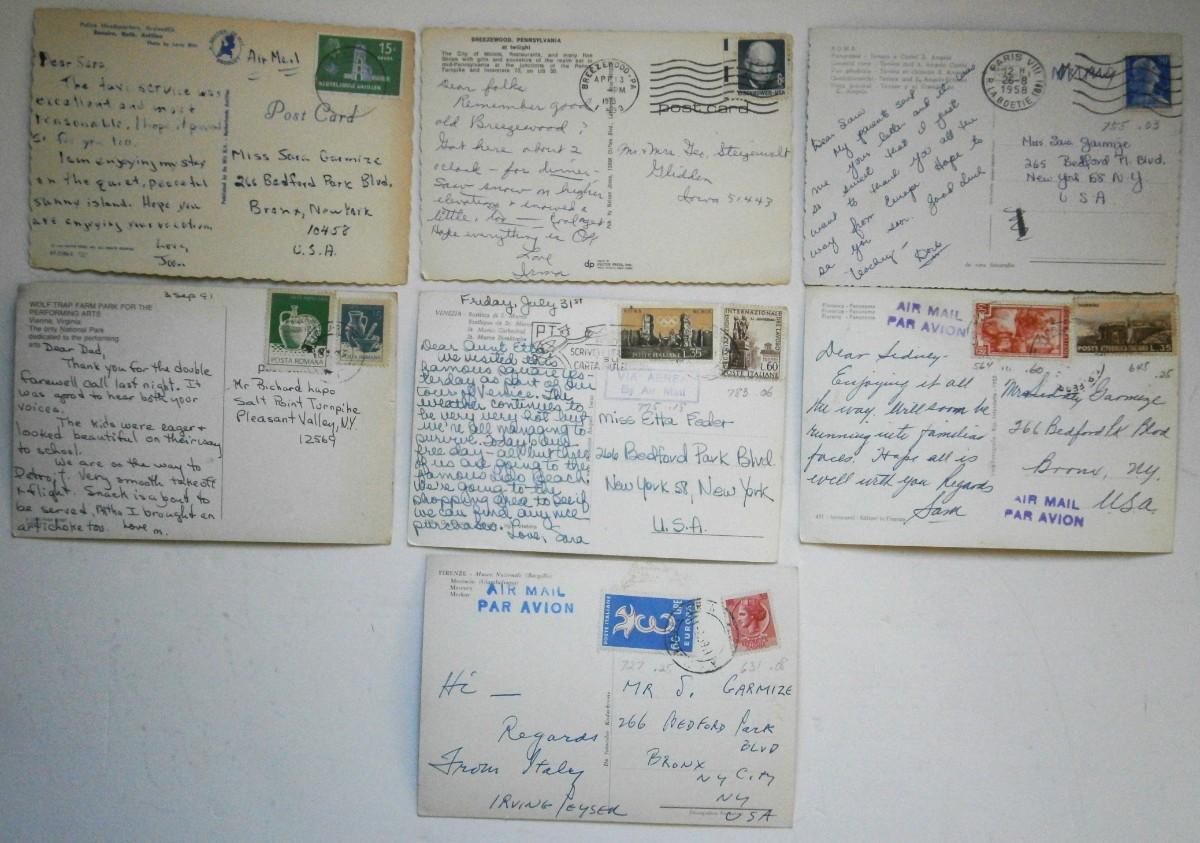 Police Headquarters, Kralendijk
Bonaire, Neth. Antilles
Air Mail
15c
NEDERLANDSE ANTILLEN
Post Card
Dear Sara,
The taxi service was
excellent and most
reasonable. I hope it proved
so for you too.
I am enjoying my stay
on the quiet, peaceful
sunny island. Hope you
are enjoying your vacation.
Love,
Miss Sara Garmize
266 Bedford Park Blvd.
Bronx, New York
10458
U.S.A.
BREEZEWOOD, PENNSYLVANIA
at twilight
The City of Motels, Restaurants, and many Gift
Shops
Turnpike and Interstate 70, on US 30.
BREEZEWOOD, PA
APR 13
PM
EISENHOWER USA
post card
Dear folks
Remember good
old Breezewood?
Got here about 2
oclock - for dinner-
Saw snow on higher
elevations & snowed a
little, too
Hope everything is OK
Love
Irma
Mr. & Mrs. Geo. Steigerwalt
Glidden
Iowa 51443
dp
ROMA
PARIS VIII
26-8
1958
R. LA BOETIE
755 .03
Dear Sara
My parents sent
me your letter and it
so sweet that I just
want to thank you all the
way from Europe. Hope to
see you soon. Good luck
teaching -
Miss Sara Garmize
265 Bedford Pl. Blvd.
New York 58 N.Y
USA
WOLF TRAP FARM PARK FOR THE
PERFORMING ARTS
Vienna, Virginia
The only National Park
dedicated to the performing
arts
3 Sep 91
POSTA ROMANA
POSTA ROMANA
Dear Dad,
Thank you for the double
farewell call last night. It
was good to hear both your
voices.
The kids were eager &
looked beautiful on their way
to school.
We are on the way to
Detroit. Very smooth take off
& flight. Snack is about to
be served. I brought an
artichoke too. Love m.
Mr Richard Lupo
Salt Point Turnpike
Pleasant Valley, N.Y.
12569
Friday, July 31st
VENEZIA - Basilica di S. Marco
PTT
SCRIVETE
POSTE ITALIANE L.35
INTERNAZIONALE
L.60
POSTE ITALIANE
VIA AEREA
By Air Mail
775 .15
783 .06
Dear Aunt Etta,
We visited this
famous square yes-
terday as part of our
tour of Venice. The
weather continues to
be very very hot, but
we're all managing to
survive. Today is our
free day - all but three
of us are going to the
famous Lido Beach.
We're going to the
shopping area to see if
we can find any nice
purchases. Love, Sara
Miss Etta Feder
266 Bedford Park Blvd.
New York 58, New York
U.S.A.
Florence - Panorama
AIR MAIL
PAR AVION
POSTE ITALIANE L.35
564 .60
648 .25
Dear Sidney-
Enjoying it all
the way. Will soon be
running into familiar
faces. Hope all is
well with you. Regards
Sam
Mr Sidney Garmize
266 Bedford Pk Blvd
Bronx, N.Y.
USA
AIR MAIL
PAR AVION
FIRENZE - Museo Nazionale (Bargello)
Mercurio (Giambologna)
AIR MAIL
PAR AVION
POSTE ITALIANE
LIRE
EUROPA
727 .25
631 .08
Hi -
Regards
From Italy
IRVING PEYSER
MR S. GARMIZE
266 BEDFORD Park
BLVD
BRONX
NY CITY
NY
USA